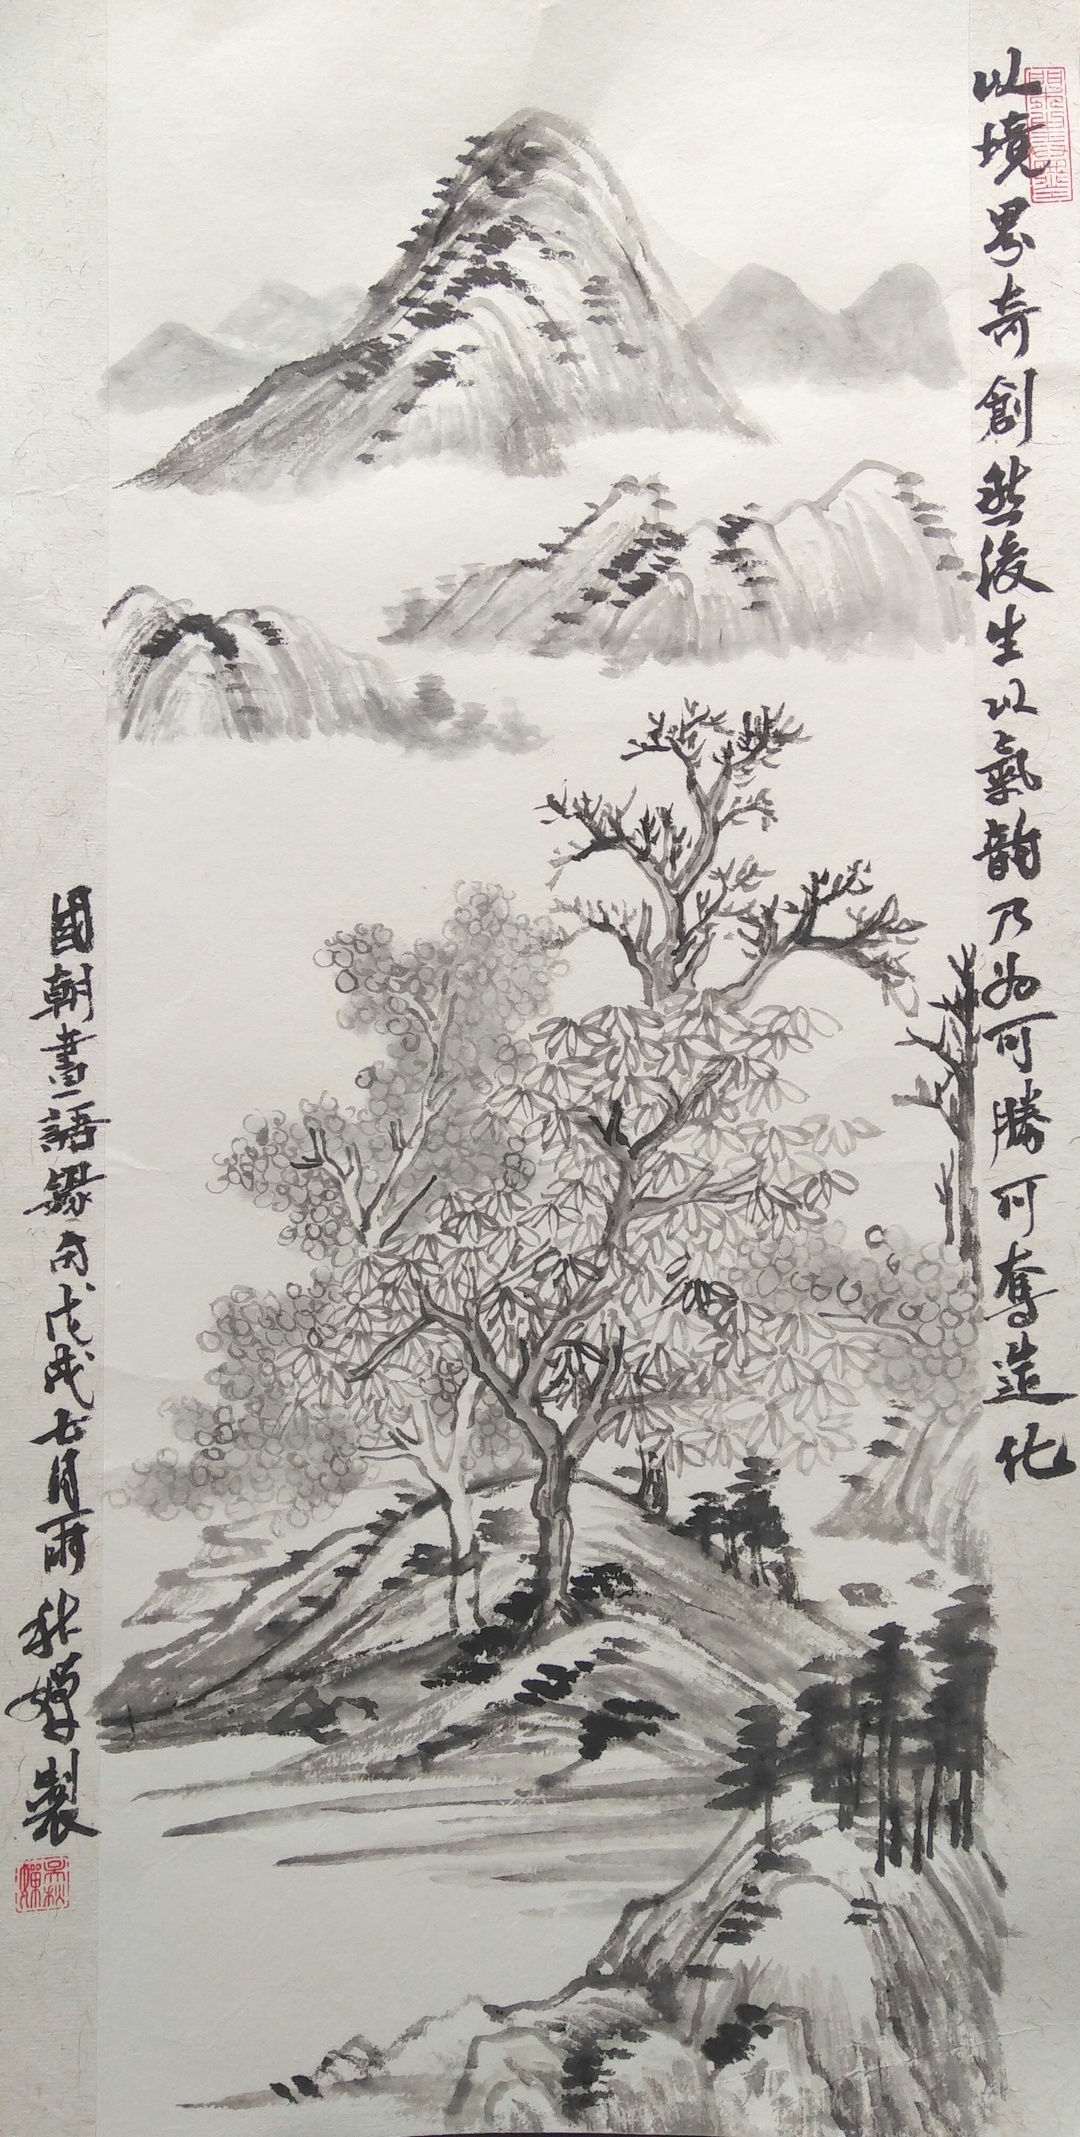 以境界奇創然後生以氣韻乃為可勝可奪造化
國朝畫語錄句戊戌七月雨秋嬋製
吳秋嬋